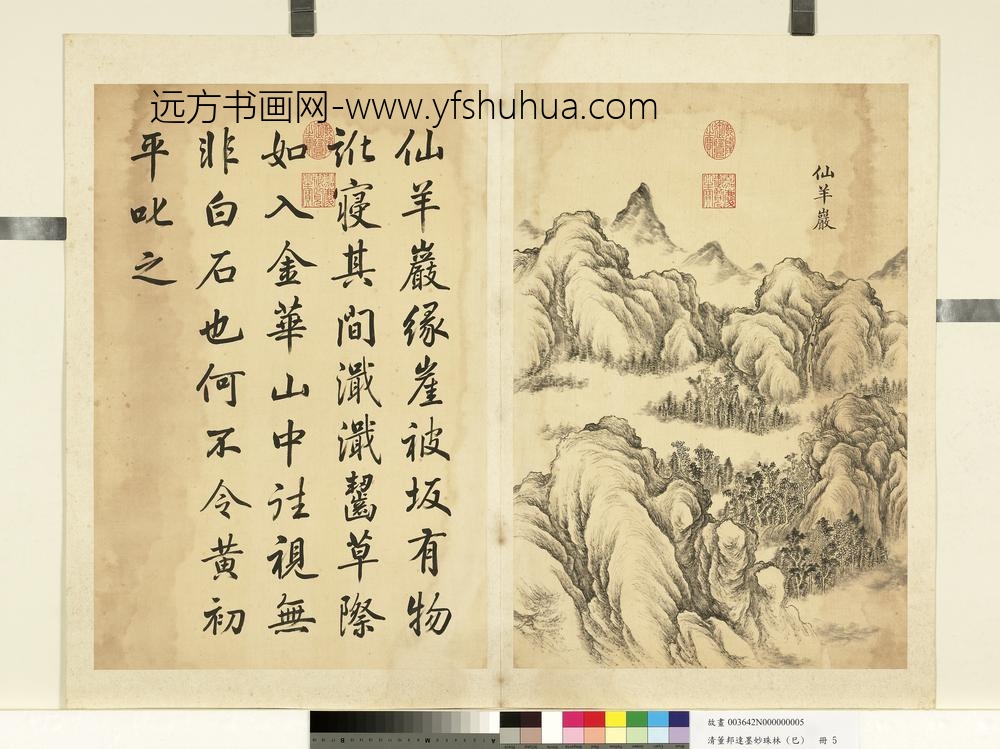 远方书画网-www.yfshuhua.com
仙羊巖
仙羊巖緣崖被坂有物
訛寢其間濈濈齧草際
如入金華山中往視無
非白石也何不令黃初
平叱之
故畫 003642N000000005
清董邦達墨妙珠林(巳) 冊 5